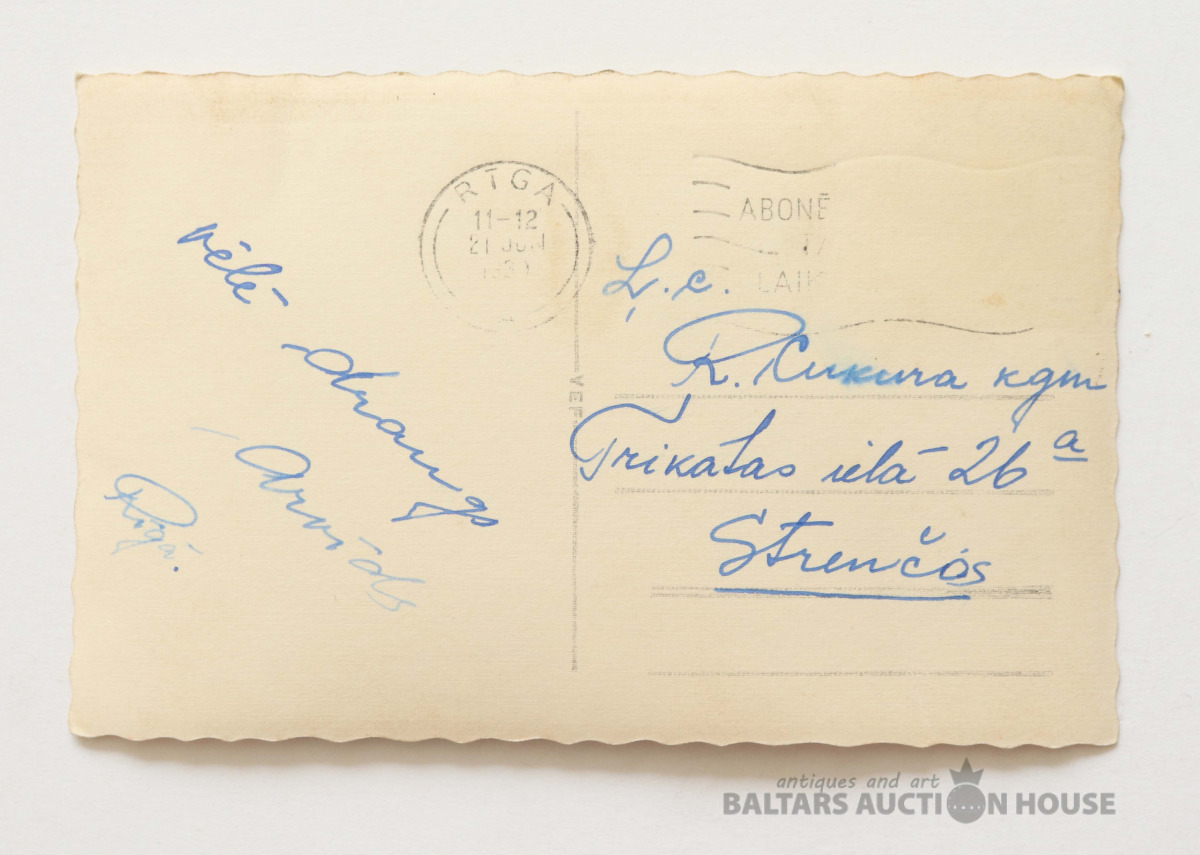 vēlē
draugs
Arvīds
Rīgā.
RĪGA
11-12
21 JUN
VEF
ABONĒ
LAIK
Ļ. c.
R. Cukura kgm
Trikatas ielā 26a
Strenčos
antiques and art
BALTARS AUCTION HOUSE